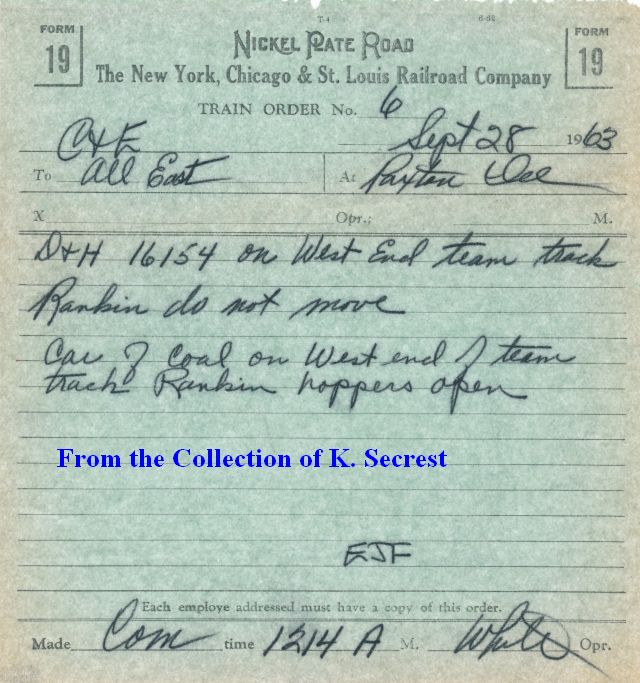 T-4 6-62
FORM 19 NICKEL PLATE ROAD FORM 19
The New York, Chicago & St. Louis Railroad Company
TRAIN ORDER No. 6
Sept 28 1963
C&E
To All East At Paxton Ill
X Opr.; M.
D&H 16154 on West End team track
Rankin do not move
Car of coal on West end of team
track Rankin hoppers open
From the Collection of K. Secrest
EJF
Each employe addressed must have a copy of this order.
Made Com time 1214 A M. White Opr.